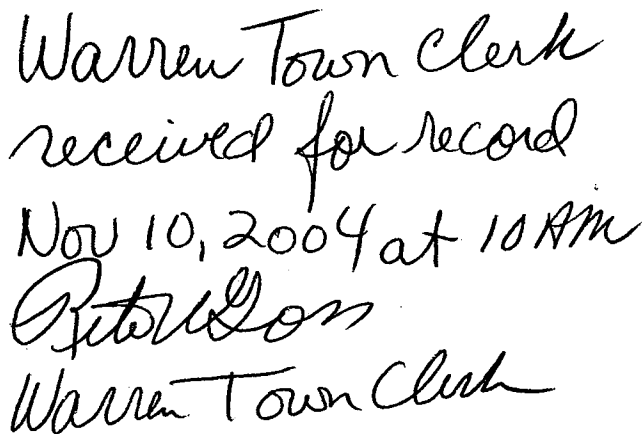 Warren Town Clerk
received for record
Nov 10, 2004 at 10 AM
Warren Town Clerk